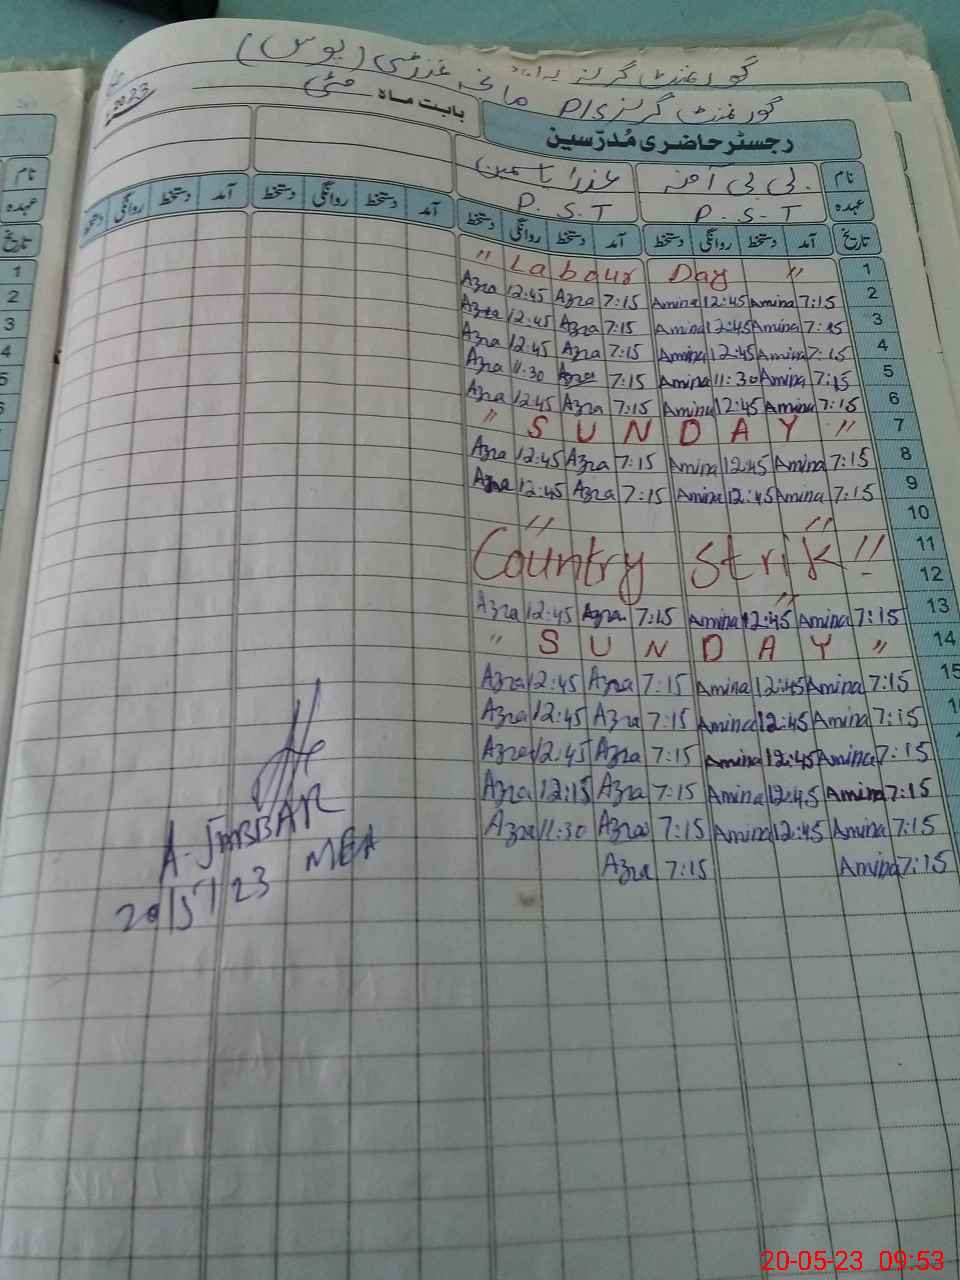 گورنمنٹ گرلز
گورنمنٹ گرلز P/S
بابت ماہ مئی 2023
رجسٹر حاضری مُدرّسین
نام بی بی آمنہ عذرا یاسمین
عہدہ P.S.T P.S.T
تاریخ آمد دستخط روانگی دستخط آمد دستخط روانگی دستخط آمد دستخط روانگی دستخط آمد دستخط روانگی دستخط
1 " Labour Day " 1
2 Azra 12:45 Azra 7:15 Amina 12:45 Amina 7:15 2
3 Azra 12:45 Azra 7:15 Amina 12:45 Amina 7:15 3
4 Azra 12:45 Azra 7:15 Amina 12:45 Amina 7:15 4
5 Azra 11:30 Azra 7:15 Amina 11:30 Amina 7:15 5
Azra 12:45 Azra 7:15 Amina 12:45 Amina 7:15 6
" S U N D A Y " 7
Azra 12:45 Azra 7:15 Amina 12:45 Amina 7:15 8
Azra 12:45 Azra 7:15 Amina 12:45 Amina 7:15 9
" " 10
Country Strik !! 11
" 12
Azra 12:45 Azra 7:15 Amina 12:45 Amina 7:15 13
" S U N D A Y " 14
Azra 12:45 Azra 7:15 Amina 12:45 Amina 7:15 15
Azra 12:45 Azra 7:15 Amina 12:45 Amina 7:15
Azra 12:45 Azra 7:15 Amina 12:45 Amina 7:15
Azra 12:15 Azra 7:15 Amina 12:45 Amina 7:15
Azra 11:30 Azra 7:15 Amina 12:45 Amina 7:15
Azra 7:15 Amina 7:15
A.JABBAR
MEA
20/5/23
نام
عہدہ
تاریخ
20-05-23 09:53